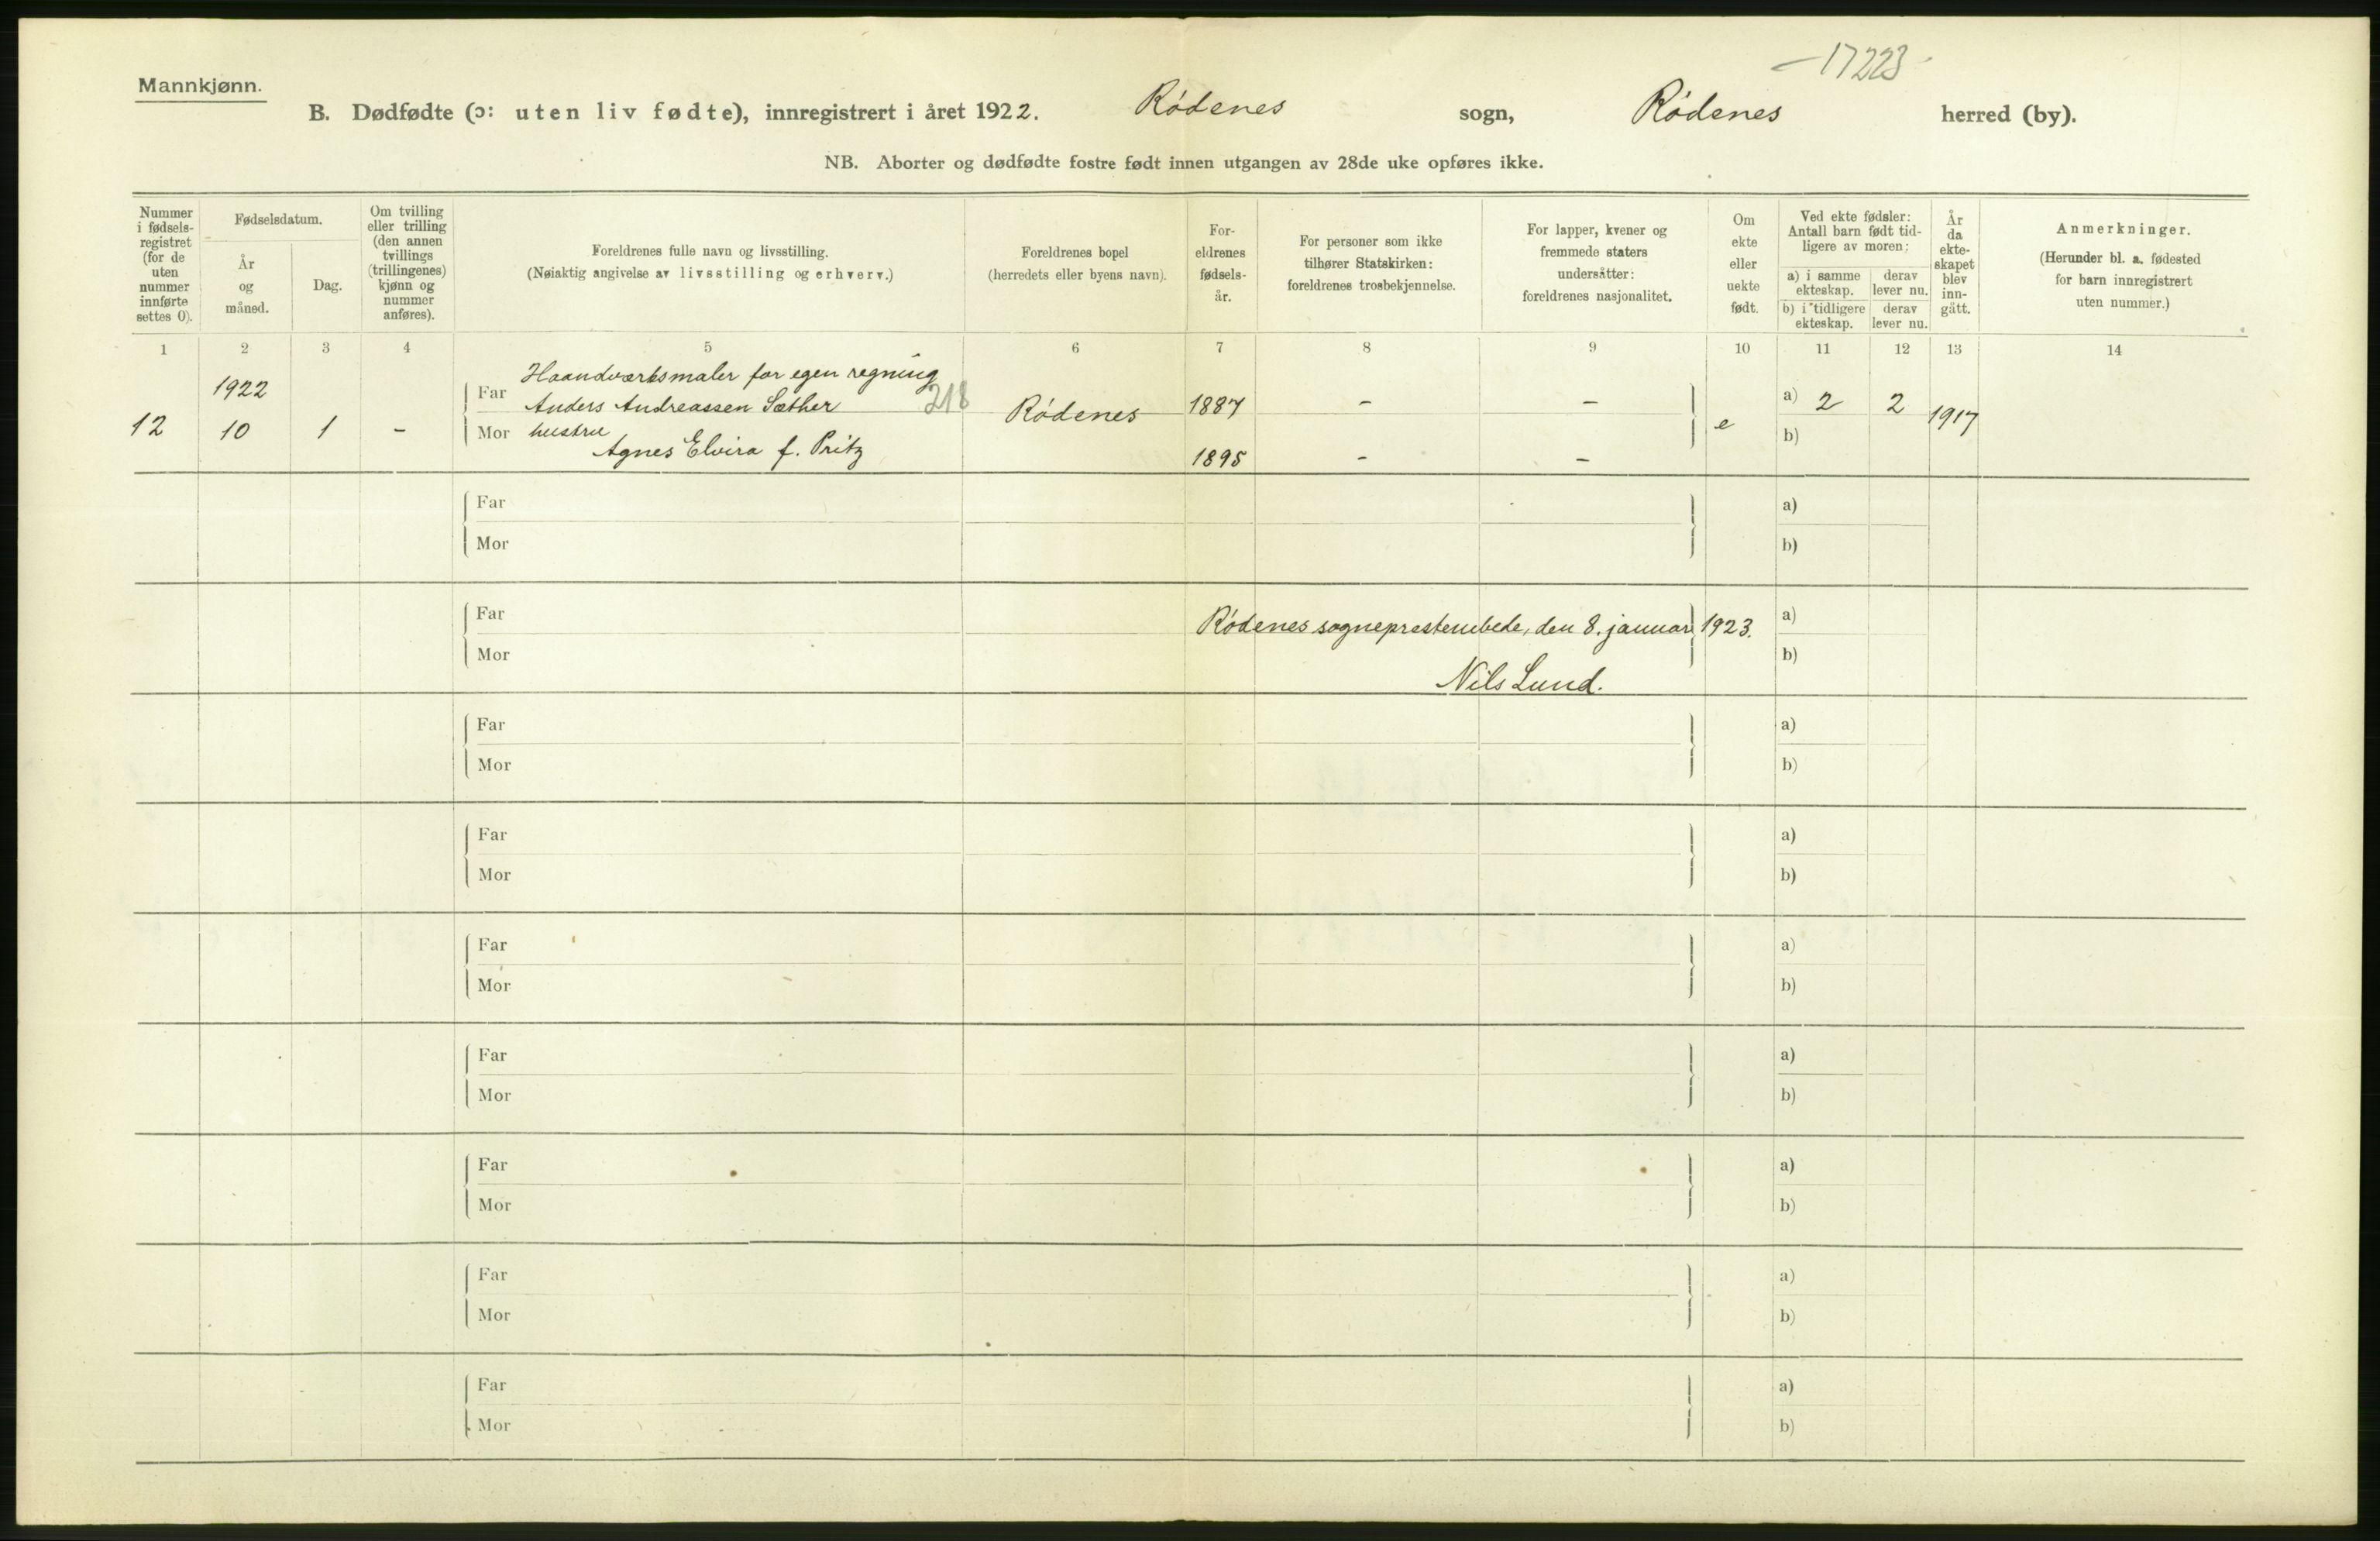 -17223-
Mannkjønn.
B. Dødfødte (ɔ: uten liv fødte), innregistrert i året 1922. Rødenes sogn, Rødenes herred (by).
NB. Aborter og dødfødte fostre født innen utgangen av 28de uke opføres ikke.
Nummer i fødsels-registret (for de uten nummer innførte settes 0).
Fødselsdatum.
År og måned.
Dag.
Om tvilling eller trilling (den annen tvillings (trillingenes) kjønn og nummer anføres).
Foreldrenes fulle navn og livsstilling.
(Nøiaktig angivelse av livsstilling og erhverv.)
Foreldrenes bopel
(herredets eller byens navn).
For-eldrenes fødsels-år.
For personer som ikke tilhører Statskirken: foreldrenes trosbekjennelse.
For lapper, kvener og fremmede staters undersåtter: foreldrenes nasjonalitet.
Om ekte eller uekte født.
Ved ekte fødsler: Antall barn født tid-ligere av moren:
a) i samme ekteskap.
derav lever nu.
b) i tidligere ekteskap.
derav lever nu.
År da ekte-skapet blev inn-gått.
Anmerkninger.
(Herunder bl. a. fødested for barn innregistrert uten nummer.)
1 2 3 4 5 6 7 8 9 10 11 12 13 14
1922
Haandværksmaler for egen regning
Far Anders Andreassen Sæther 218 Rødenes 1887 - - a) 2 2 1917
12 10 1 - Mor hustru e b)
Agnes Elvira f. Pritz 1895 - -
Far a)
Mor b)
Far a)
Rødenes sogneprestembede, den 8. januar 1923.
Mor b)
Nils Lund.
Far a)
Mor b)
Far a)
Mor b)
Far a)
Mor b)
Far a)
Mor b)
Far a)
Mor b)
Far a)
Mor b)
Far a)
Mor b)